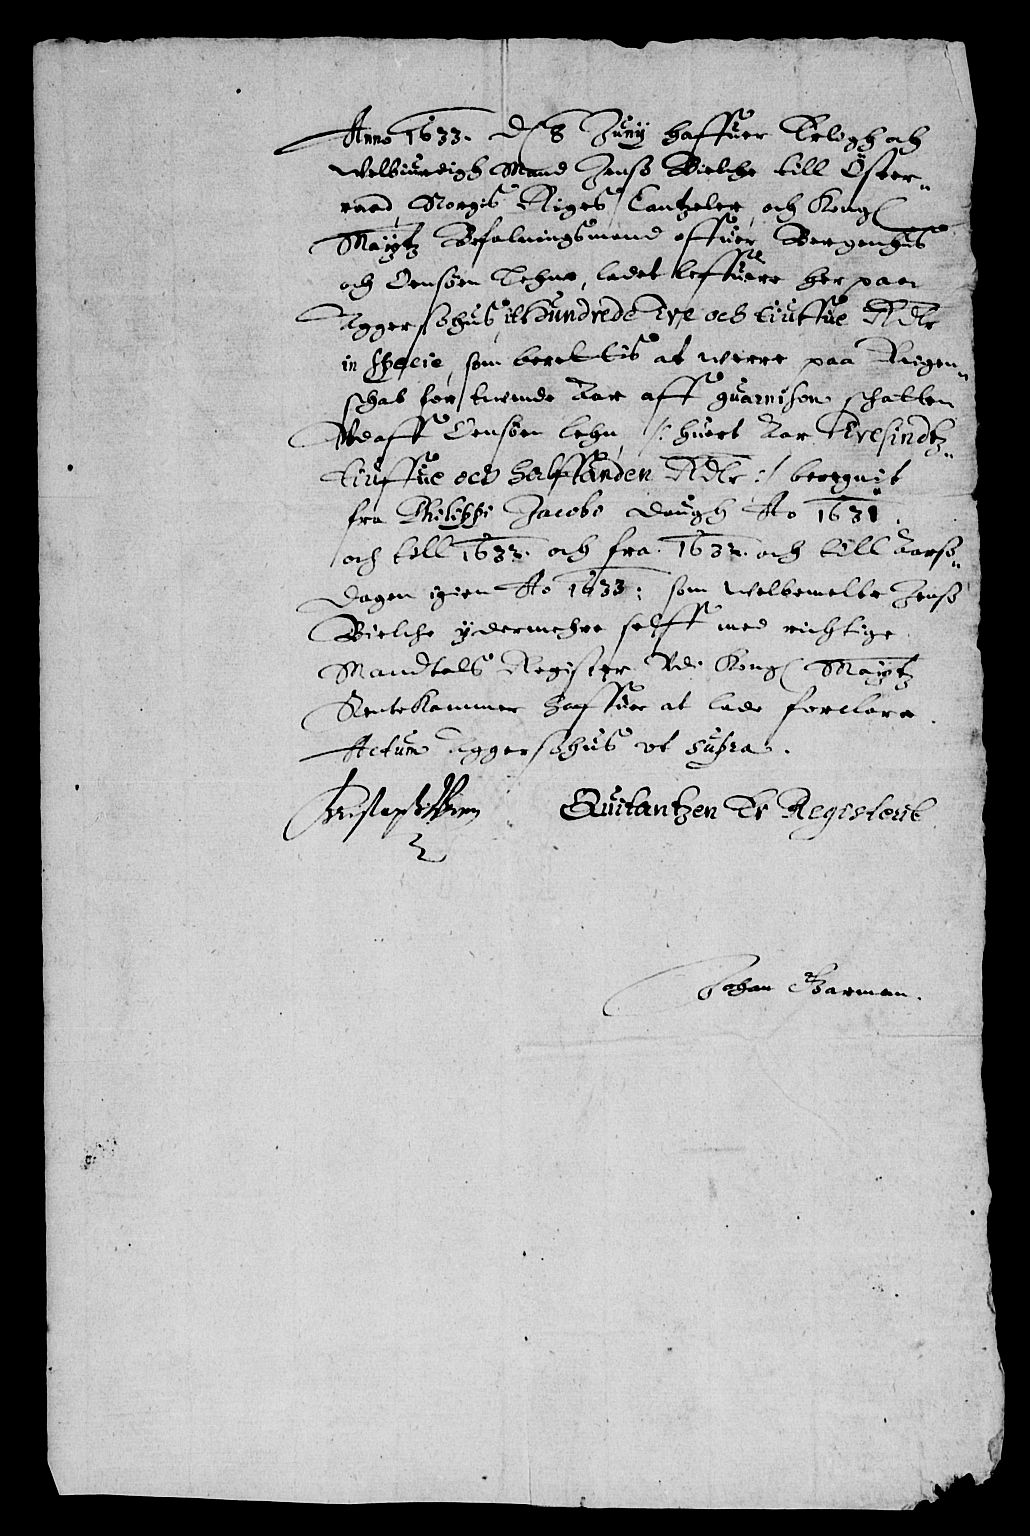 Anno 1633. d 8 Junÿ haffuer Erligh och
Welbiurdigh Mand Jenss Bielche till Öster-
raad, Norgis Riges Cantzeler, och Kong
Maÿtz Befalningsmand offuer Bergenhus
och Onsöen Lehne, ladet leffuere her paa
Aggershus it Hundrede Tre och tiuffue Rdlr
in Specie, som berettis at werre paa Reigen-
schab for tuende Aar aff guarnison schatten
Vdaff Onsöen lehn, /: huert Aar Tresindtz-
tiuffue och halffanden Rdlr :/ beregnit
fra Philippi Jacobi daugh Ao 1631.
och till 1632. och fra 1632. och till Aarss-
dagen igien Ao 1633: som welbemelte Jenss
Bielche ydermehre selff med richtige
Mandtals Register Vdi Kong Maÿtz
Rente Kammer haffuer at lade forclare.
Actum Aggershus vt supra.
Quitantzen Er Registerit
Johan